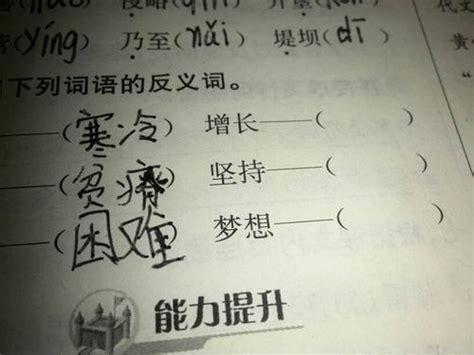 侵略(
营(yíng) 乃至(nǎi) 堤坝(dī)
下列词语的反义词。
——(寒冷) 增长——( )
——(贫瘠) 坚持——( )
——(困难) 梦想——( )
能力提升